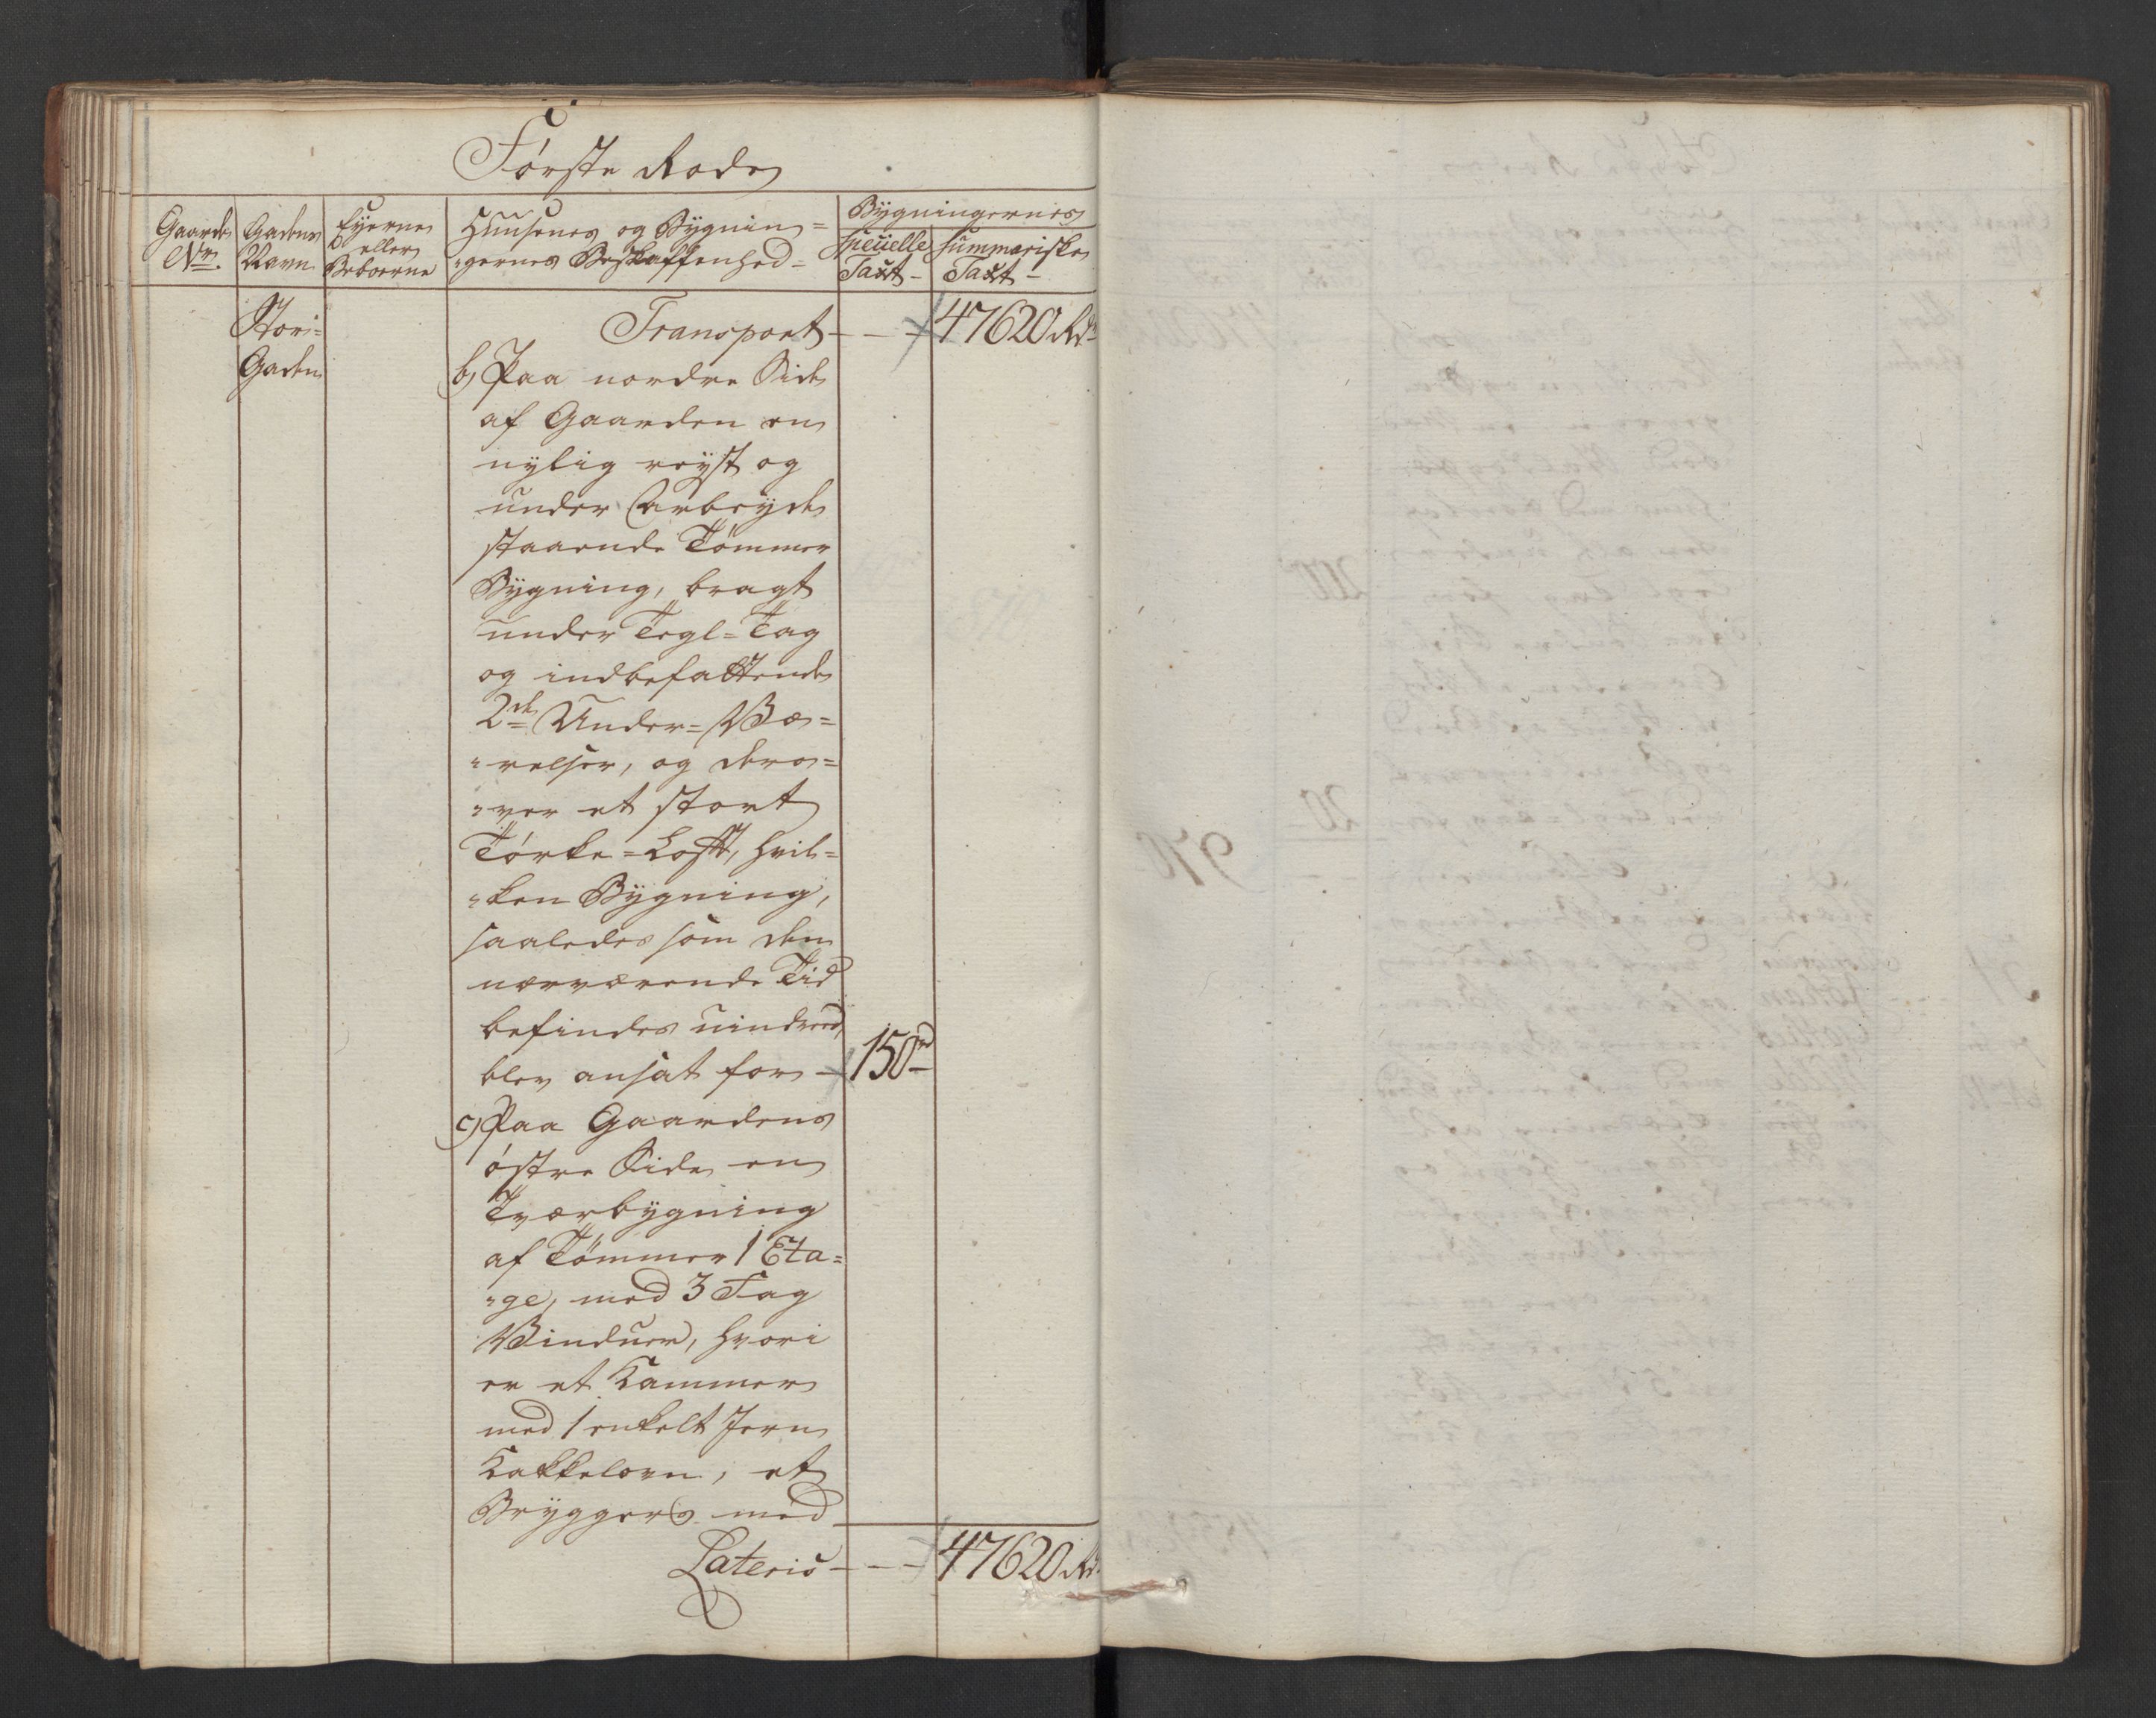 Første Rode
Gaardes No.
Gadens Navn
Eyerne eller Beboerne
Huusenes og Bygnin=
=gernes Beskaffenhed=
Bygningernes
specielle Taxt -
summariske Taxt -
Stor=
Gaden
Transport - - - 47620 Rdr
b) Paa nordre Side
af Gaarden en
nylig reyst og
under Arbeyde
staaende Tømmer
Bygning, bragt
under Tegl=Tag
og indbefattende
2de Under=Væ=
=relser, og dero=
=ver et stort
Tørke=Loft, hvil=
=ken Bygning,
saaledes som den
nærværende Tid
befindes uindreed,
blev ansat for - 150 rd
c) Paa Gaardens
østre Side en
Tværbygning
af Tømmer 1 Eta=
=ge, med 3 Fag
Vinduer, hvori
er et Kammer
med 1 enkelt Jern
Kakkelovn, et
Bryggers med
Lateris - - - 47620 Rd